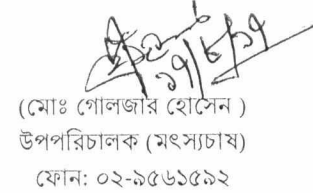 ১৭/৮/১৭
(মোঃ গোলজার হোসেন )
উপপরিচালক (মৎস্যচাষ)
ফোন: ০২-৯৫৬১৫৯২